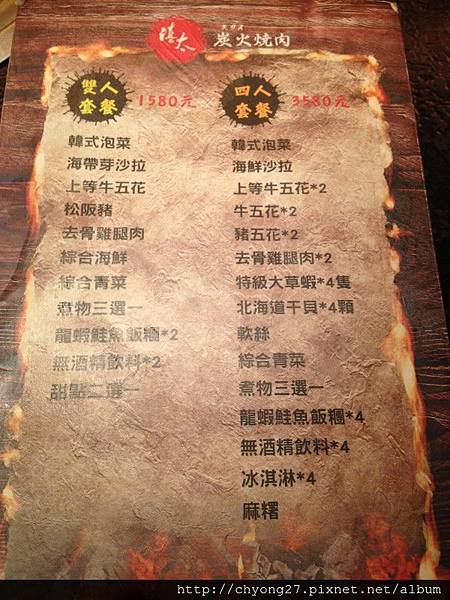 禧太
炭火燒肉
雙人
套餐
1580元
韓式泡菜
海帶芽沙拉
上等牛五花
松阪豬
去骨雞腿肉
綜合海鮮
綜合青菜
煮物三選一
龍蝦鮭魚飯糰*2
無酒精飲料*2
甜點二選一
四人
套餐
3580元
韓式泡菜
海鮮沙拉
上等牛五花*2
牛五花*2
豬五花*2
去骨雞腿肉*2
特級大草蝦*4隻
北海道干貝*4顆
軟絲
綜合青菜
煮物三選一
龍蝦鮭魚飯糰*4
無酒精飲料*4
冰淇淋*4
麻糬
http://chyong27.pixnet.net/album